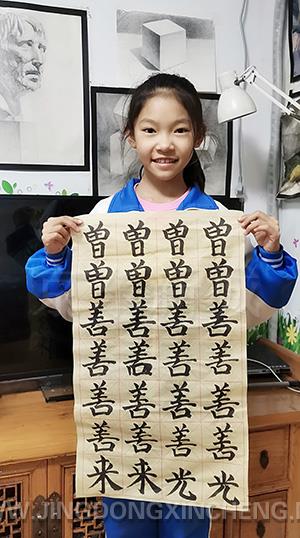 曾曾曾曾
曾曾曾曾
善善善善
善善善善
善善善善
善善善善
来来光光
WW.JINGDONGXINCHENG.